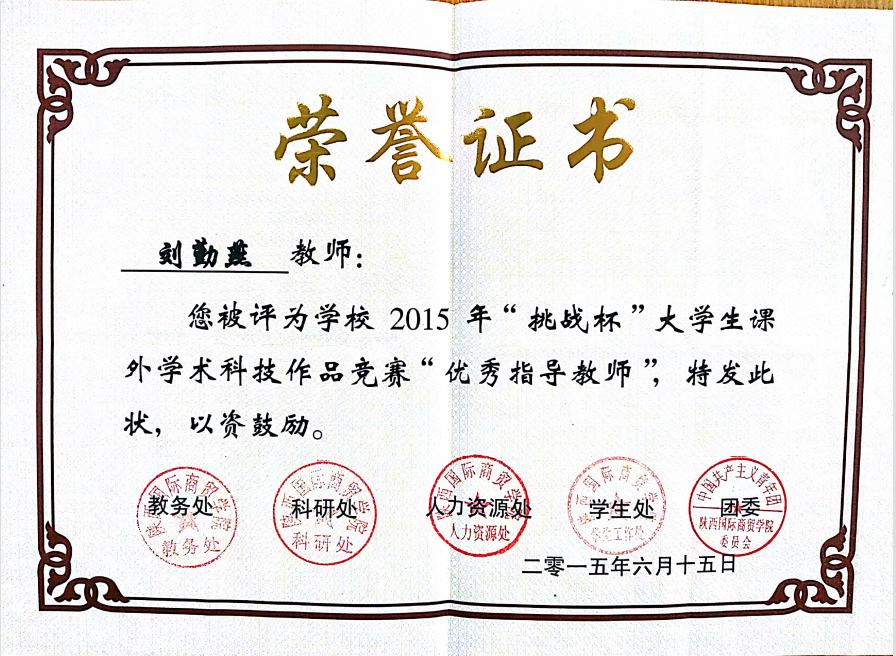 荣誉证书
刘勤燕 教师：
您被评为学校 2015 年“挑战杯”大学生课
外学术科技作品竞赛“优秀指导教师”，特发此
状，以资鼓励。
陕西国际商贸学院 陕西国际商贸学院 陕西国际商贸学院 陕西国际商贸学院 中国共产主义青年团
教务处 科研处 人力资源处 学生处 团委
教务处 科研处 人力资源处 学生工作处 陕西国际商贸学院
委员会
二零一五年六月十五日